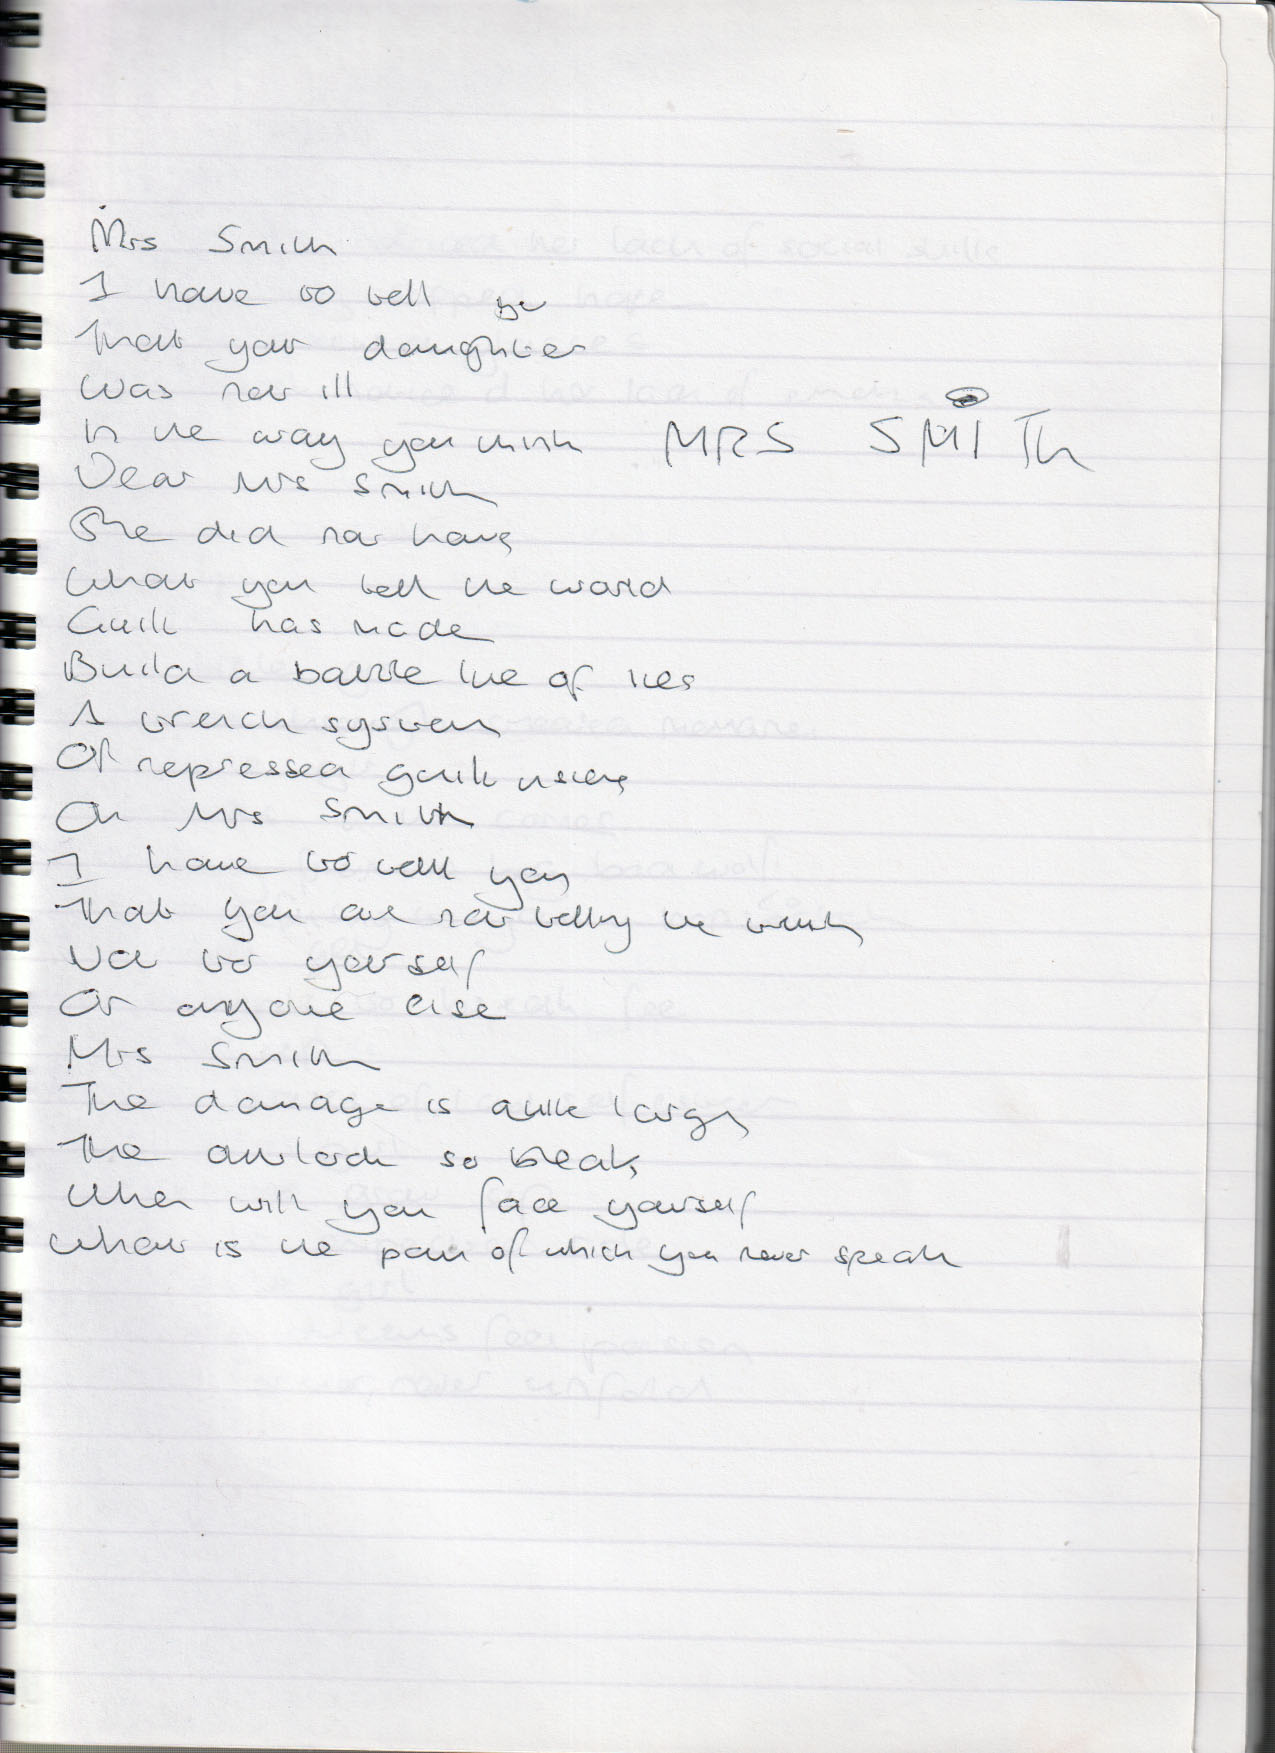 Mrs Smith
I have to tell you
That your daughter
Was not ill
In the way you think MRS SMITH
Dear Mrs Smith
She did not have
What you tell the world
Guilt has made
Build a battle line of lies
A trench system
Of repressed guilt
Oh Mrs Smith
I have to tell you
That you are not telling the truth
Not to yourself
Or anyone else
Mrs Smith
The damage is quite large
The outlook so bleak
When will you face yourself
What is the pain of which you never speak